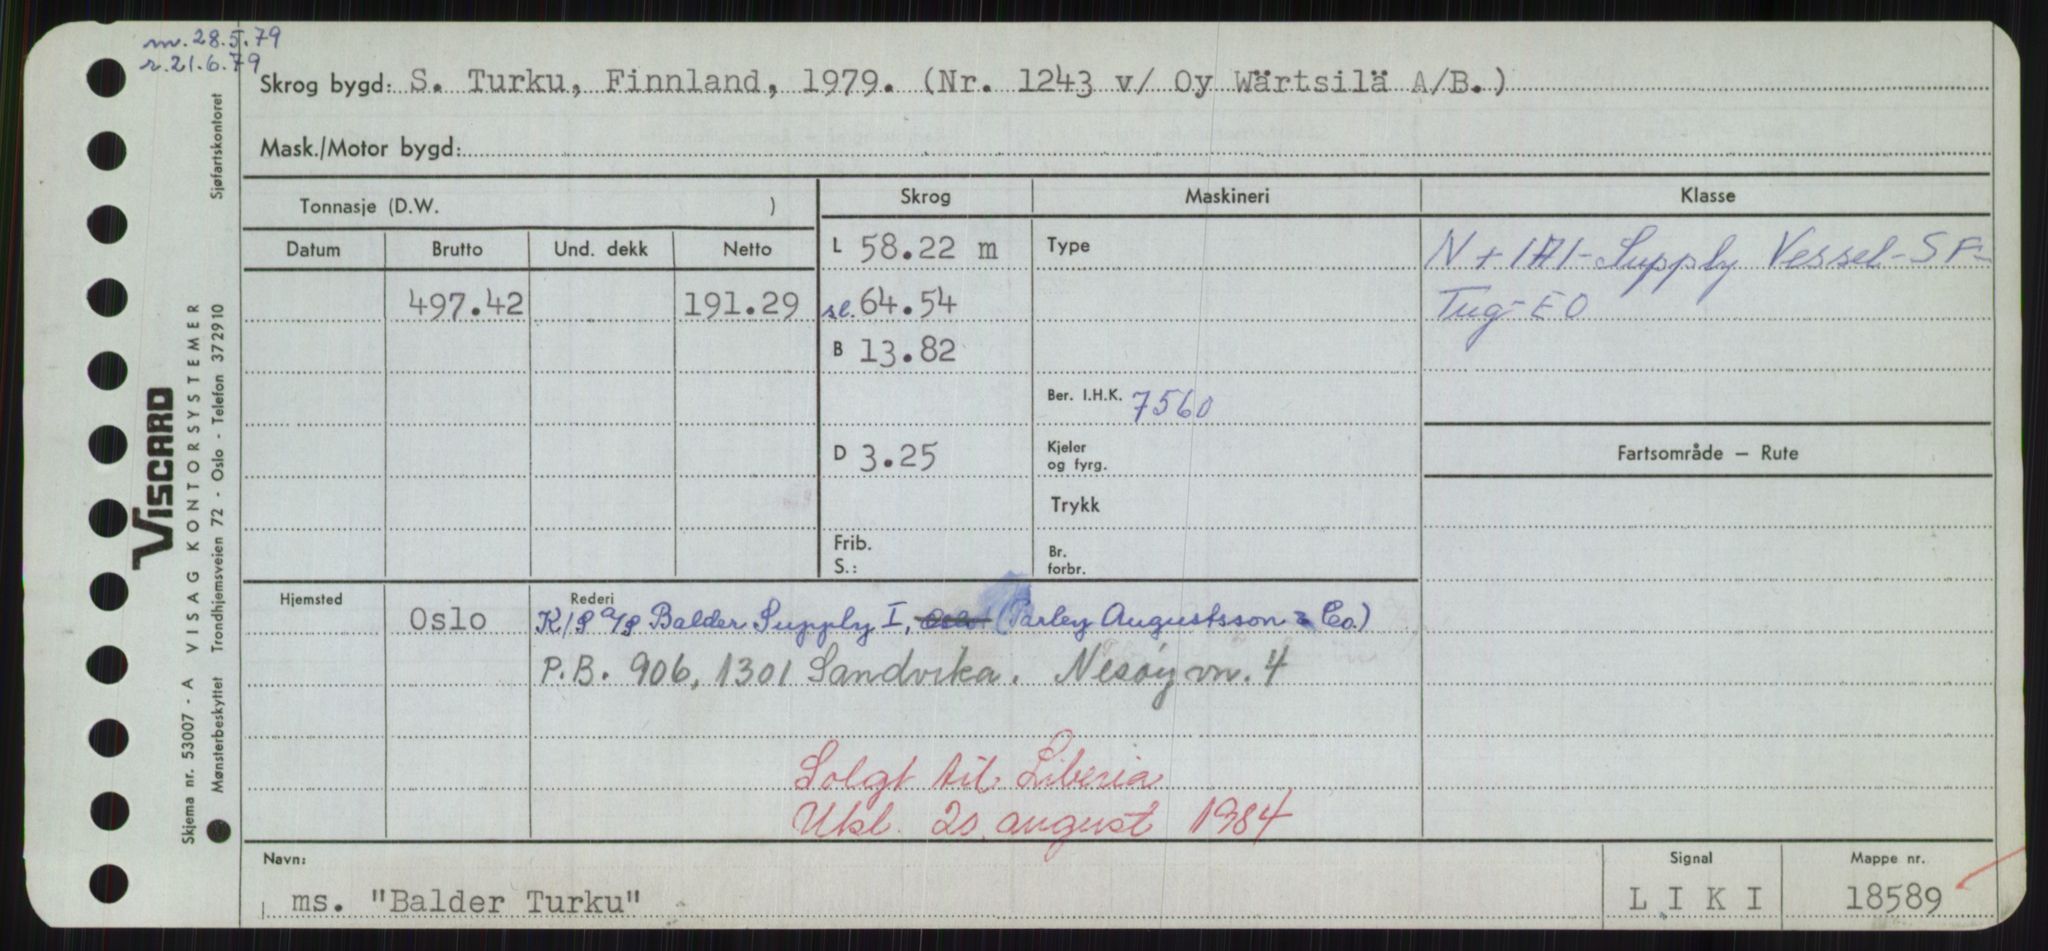 m. 28.5.79
r. 21.6.79
Skrog bygd: S. Turku, Finnland, 1979. (Nr. 1243 v/ Oy Wärtsilä A/B.)
Mask./Motor bygd:
Tonnasje (D.W. )
Skrog
Maskineri
Klasse
Datum
Brutto
Und. dekk
Netto
L 58.22 m
Type
N + 1A1- Supply Vessel- SF-
497.42
191.29
sl. 64.54
Tug- EO
B 13.82
Ber. I.H.K. 7560
D 3.25
Kjeler
og fyrg.
Fartsområde — Rute
Trykk
Frib.
S.:
Br.
forbr.
Hjemsted
Oslo
Rederi
K/S A/S Balder Supply I, Oslo (Parley Augustsson & Co.)
P.B. 906, 1301 Sandvika. Nesøyvn. 4
Solgt til Liberia
Utkl. august 1984
Navn:
ms. "Balder Turku"
Signal
L I K I
Mappe nr.
18589
VISCARD
Skjema nr. 53007 - A VISAG KONTORSYSTEMER
Mønsterbeskyttet Trondhjemsveien 72 - Oslo - Telefon 372910 Sjøfartskontoret